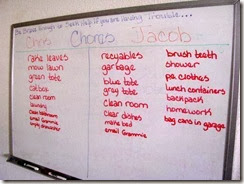 Be Brave enough to
if you are having trouble...
Chris
Chores
Jacob
rake leaves
mow lawn
green tote
cat box
clean room
laundry
clean bathroom
email Grammie
empty dishwasher
recyables
garbage
blue tote
grey tote
clean room
clear dishes
make bed
email Grammie
brush teeth
shower
pe clothes
lunch containers
backpack
homework
bag cans in garage